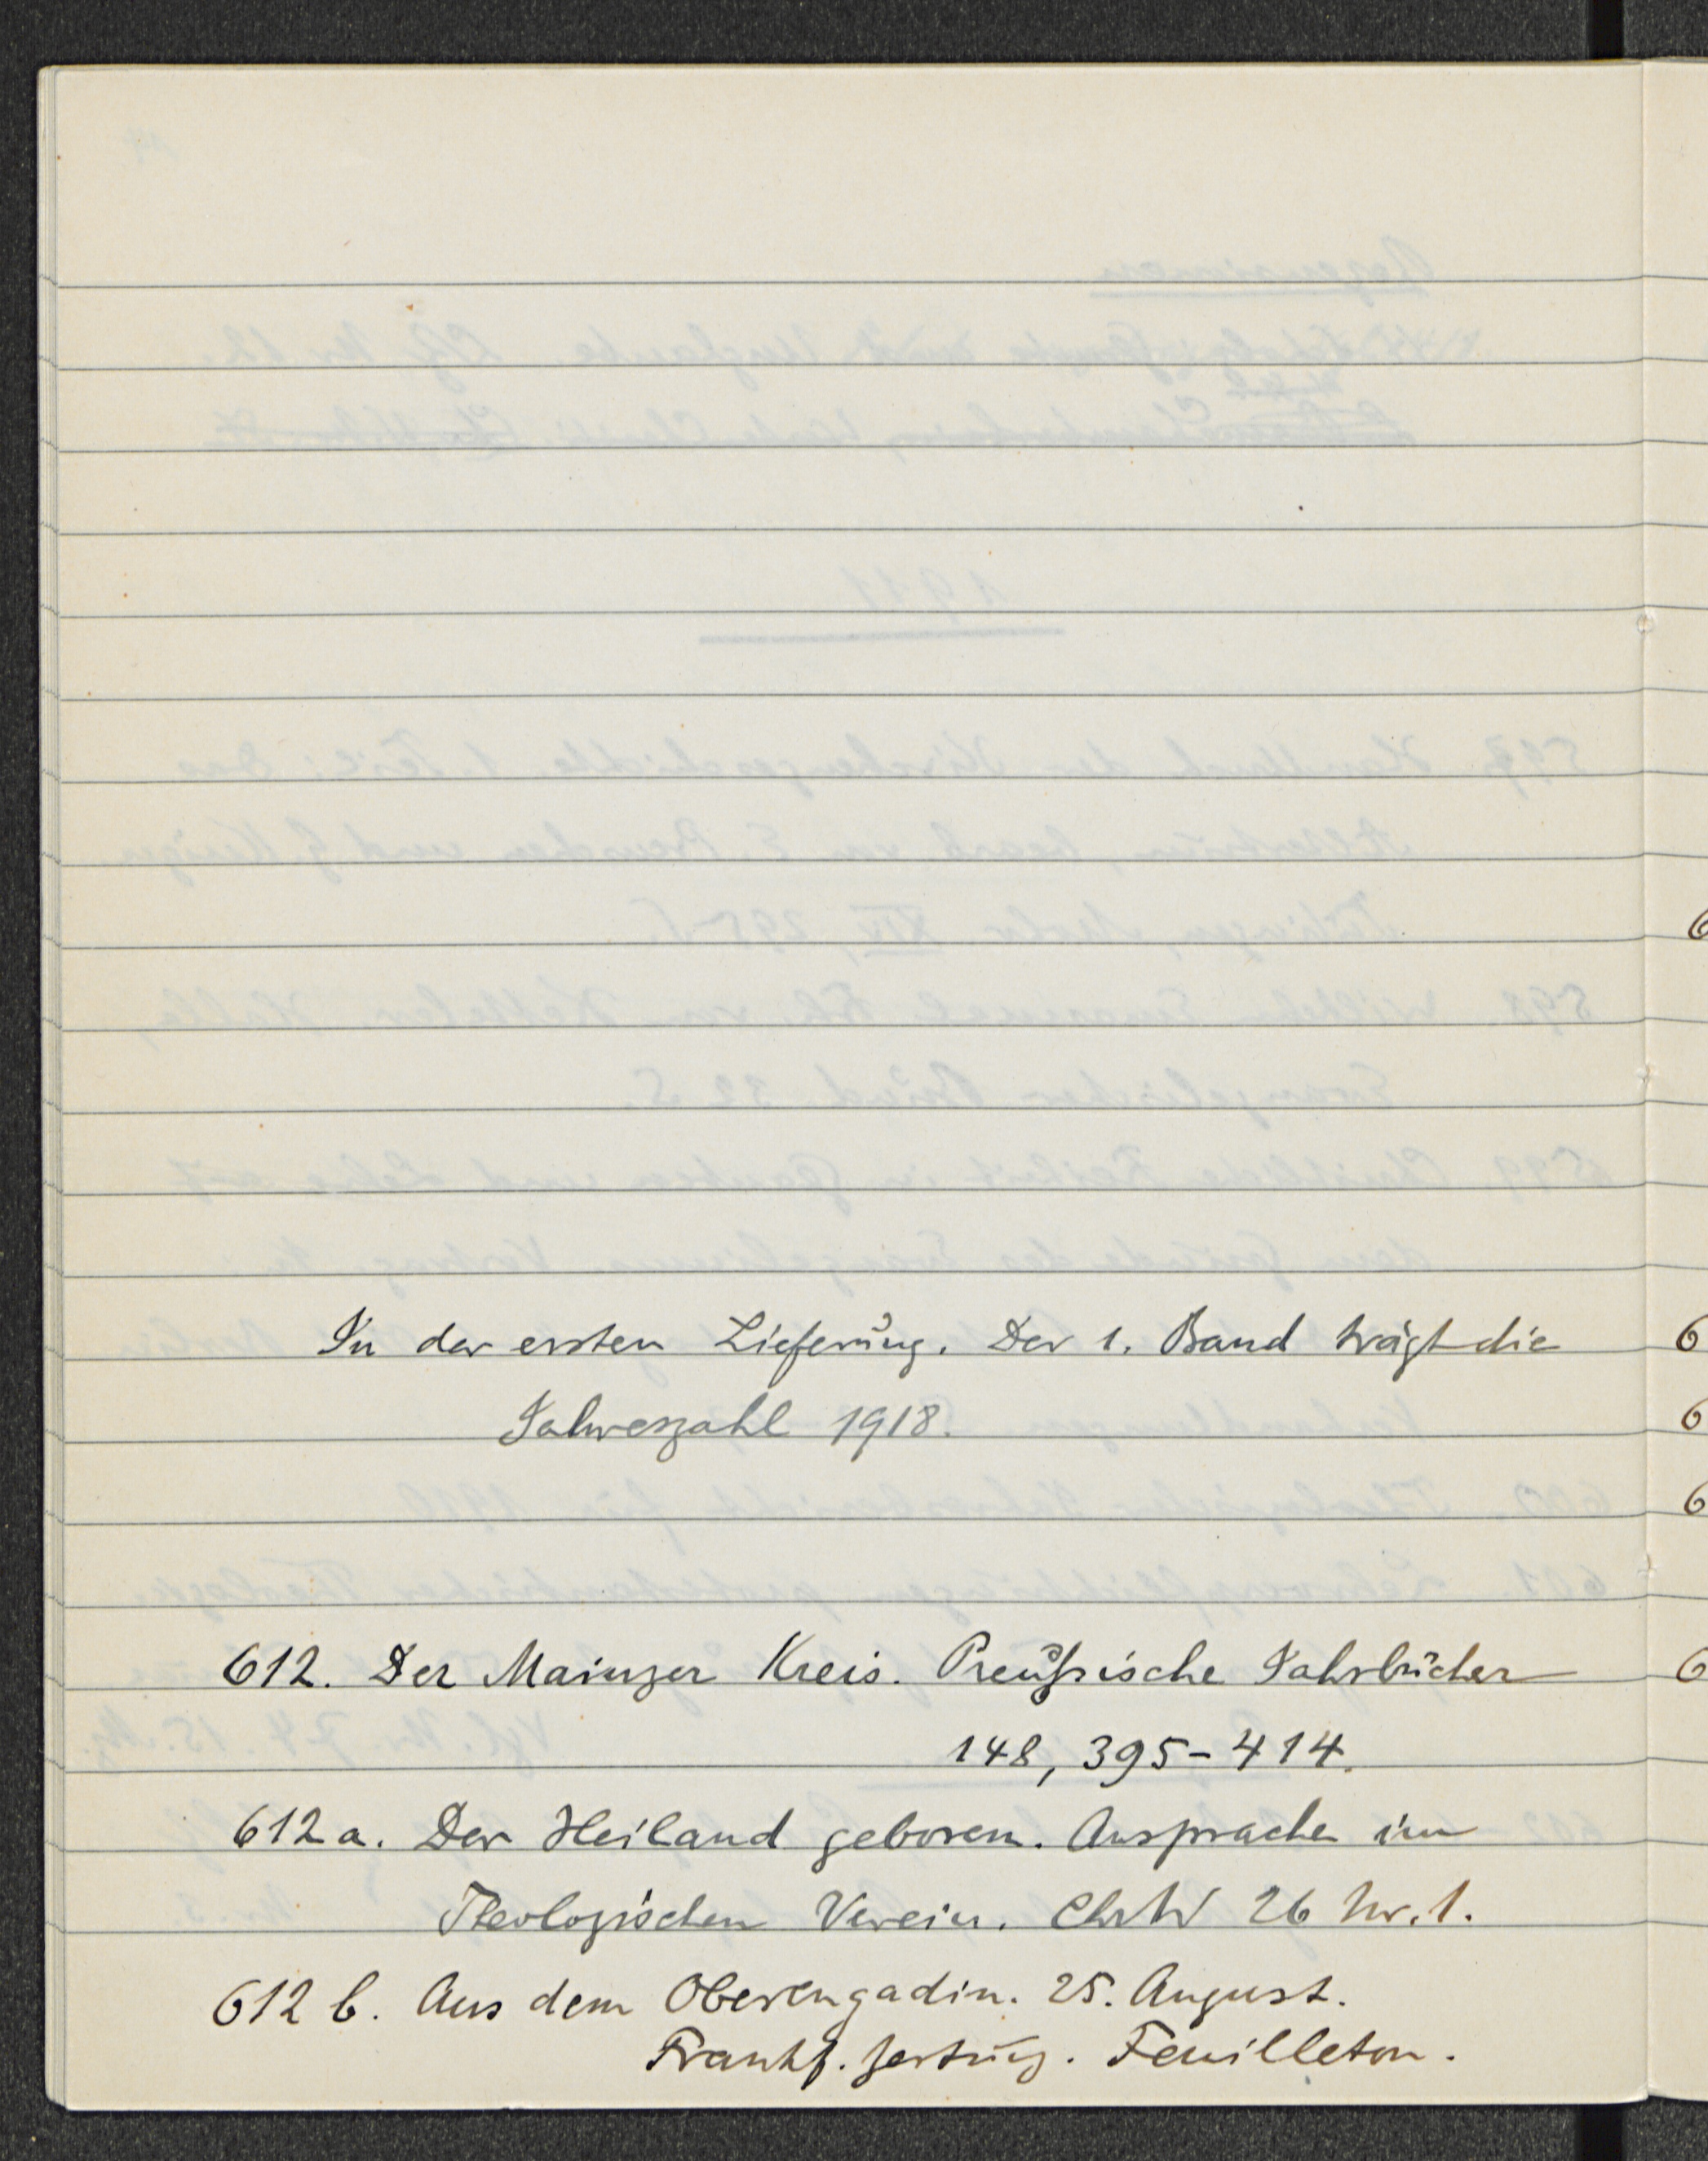 In der ersten Lieferung. Der 1. Band trägt die
Jahreszahl 1918.
612. Der Mainzer Kreis. Preußische Jahrbücher
148, 395-414.
612a. Der Heiland geboren. Ansprache im
Theologischen Verein. ChrW 26 Nr. 1.
612 b. Aus dem Oberengadin. 25. August.
Frankf. Zeitung. Feuilleton.